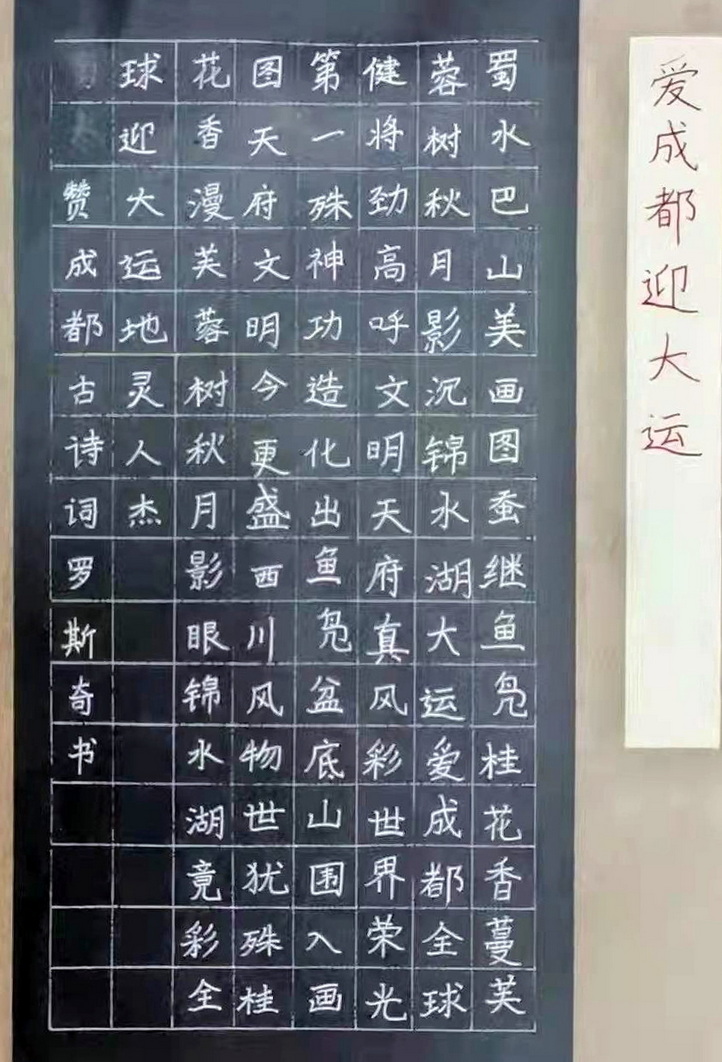 爱成都迎大运
蜀水巴山美画图蚕继鱼凫桂花香蔓芙
蓉树秋月影沉锦水湖大运爱成都全球
健将劲高呼文明天府真风彩世界荣光
第一殊神功造化出鱼凫盆底山围入画
图天府文明今更盛西川风物世犹殊桂
花香漫芙蓉树秋月影眼锦水湖竟彩全
球迎大运地灵人杰
赞成都古诗词罗斯奇书